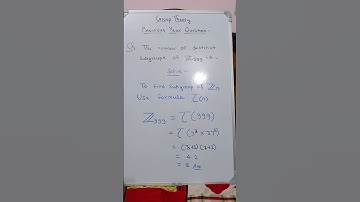 Group Theory
Previous Year Question -
Q. The number of distinct
Subgroups of Z₉₉₉ is -
Soln -
To Find Subgroup of Zn
Use Formula τ(n)
Z₉₉₉ = τ(999)
= τ(3³ × 37¹)
= (3+1)(1+1)
= 4.2
= 8 Ans